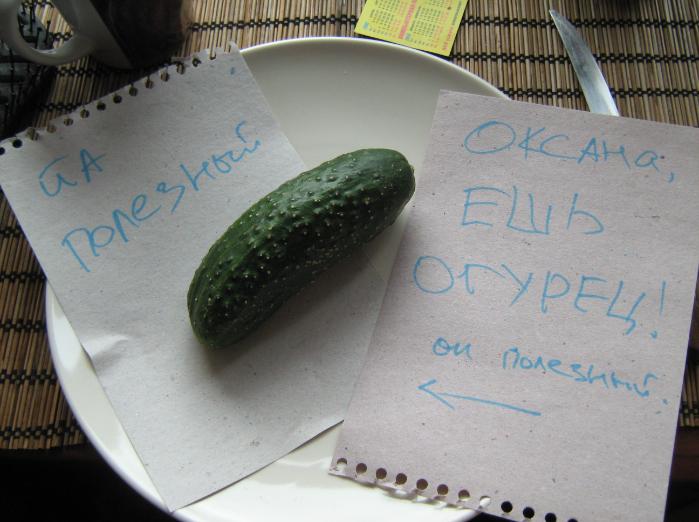 йА
полезный
ОКСАНа,
ЕШЬ
ОГУРЕЦ!
он полезный.